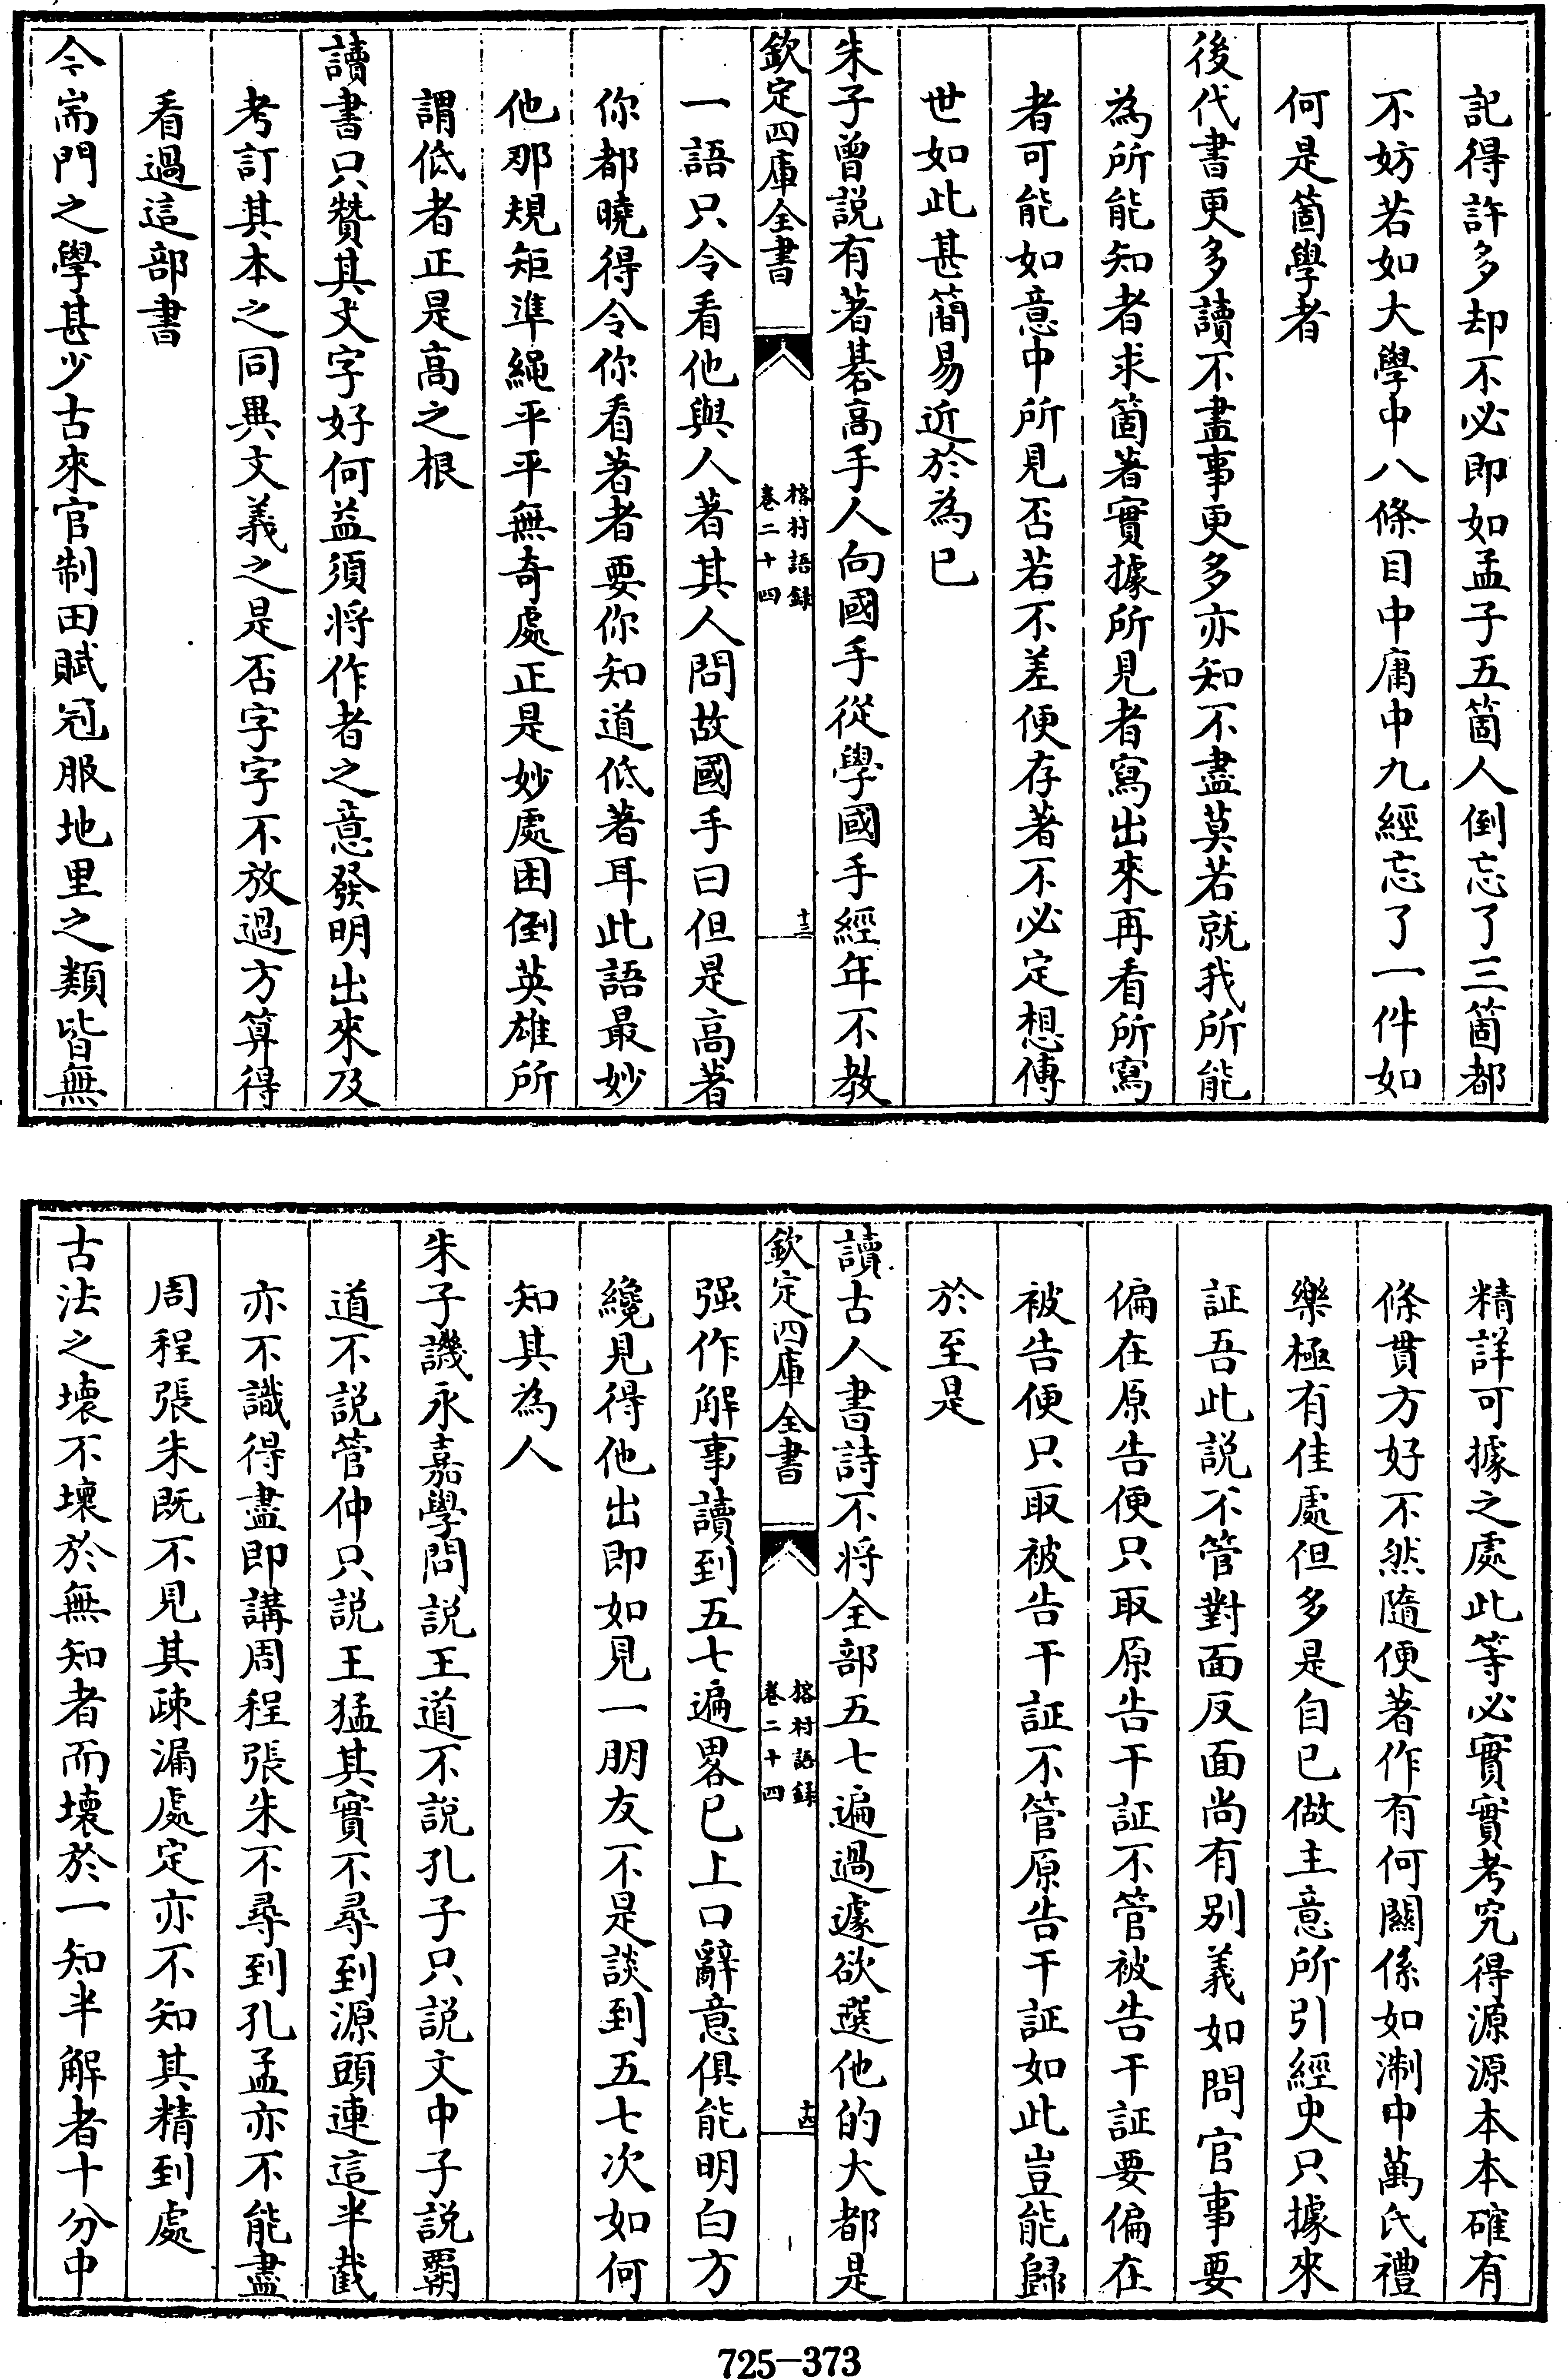 記得許多却不必即如孟子五箇人倒忘了三箇都
不妨若如大學中八條目中庸中九經忘了一件如
何是箇學者
後代書更多讀不盡事更多亦知不盡莫若就我所能
為所能知者求箇著實據所見者寫出來再看所寫
者可能如意中所見否若不差便存著不必定想傳
世如此甚簡易近於為已
朱子曾説有著碁高手人向國手從學國手經年不教
欽定四庫全書
榕村語録
卷二十四
十三
一語只令看他與人著其人問故國手曰但是高著
你都曉得令你看著者要你知道低著耳此語最妙
他那規矩準繩平平無奇處正是妙處困倒英雄所
謂低者正是高之根
讀書只贊其文字好何益須將作者之意發明出來及
考訂其本之同異文義之是否字字不放過方算得
看過這部書
今耑門之學甚少古來官制田賦冠服地里之類皆無
精詳可據之處此等必實實考究得源源本本確有
條貫方好不然隨便著作有何關係如淛中萬氏禮
樂極有佳處但多是自已做主意所引經史只據來
証吾此説不管對面反面尚有别義如問官事要
偏在原告便只取原告干証不管被告干証要偏在
被告便只取被告干証不管原告干証如此豈能歸
於至是
讀古人書詩不將全部五七遍過遽欲選他的大都是
欽定四庫全書
榕村語録
卷二十四
十四
强作解事讀到五七遍畧已上口辭意俱能明白方
纔見得他出即如見一朋友不是談到五七次如何
知其為人
朱子譏永嘉學問説王道不説孔子只説文中子説覇
道不説管仲只説王猛其實不尋到源頭連這半截
亦不識得盡即講周程張朱不尋到孔孟亦不能盡
周程張朱既不見其疎漏處定亦不知其精到處
古法之壞不壞於無知者而壞於一知半解者十分中
725-373